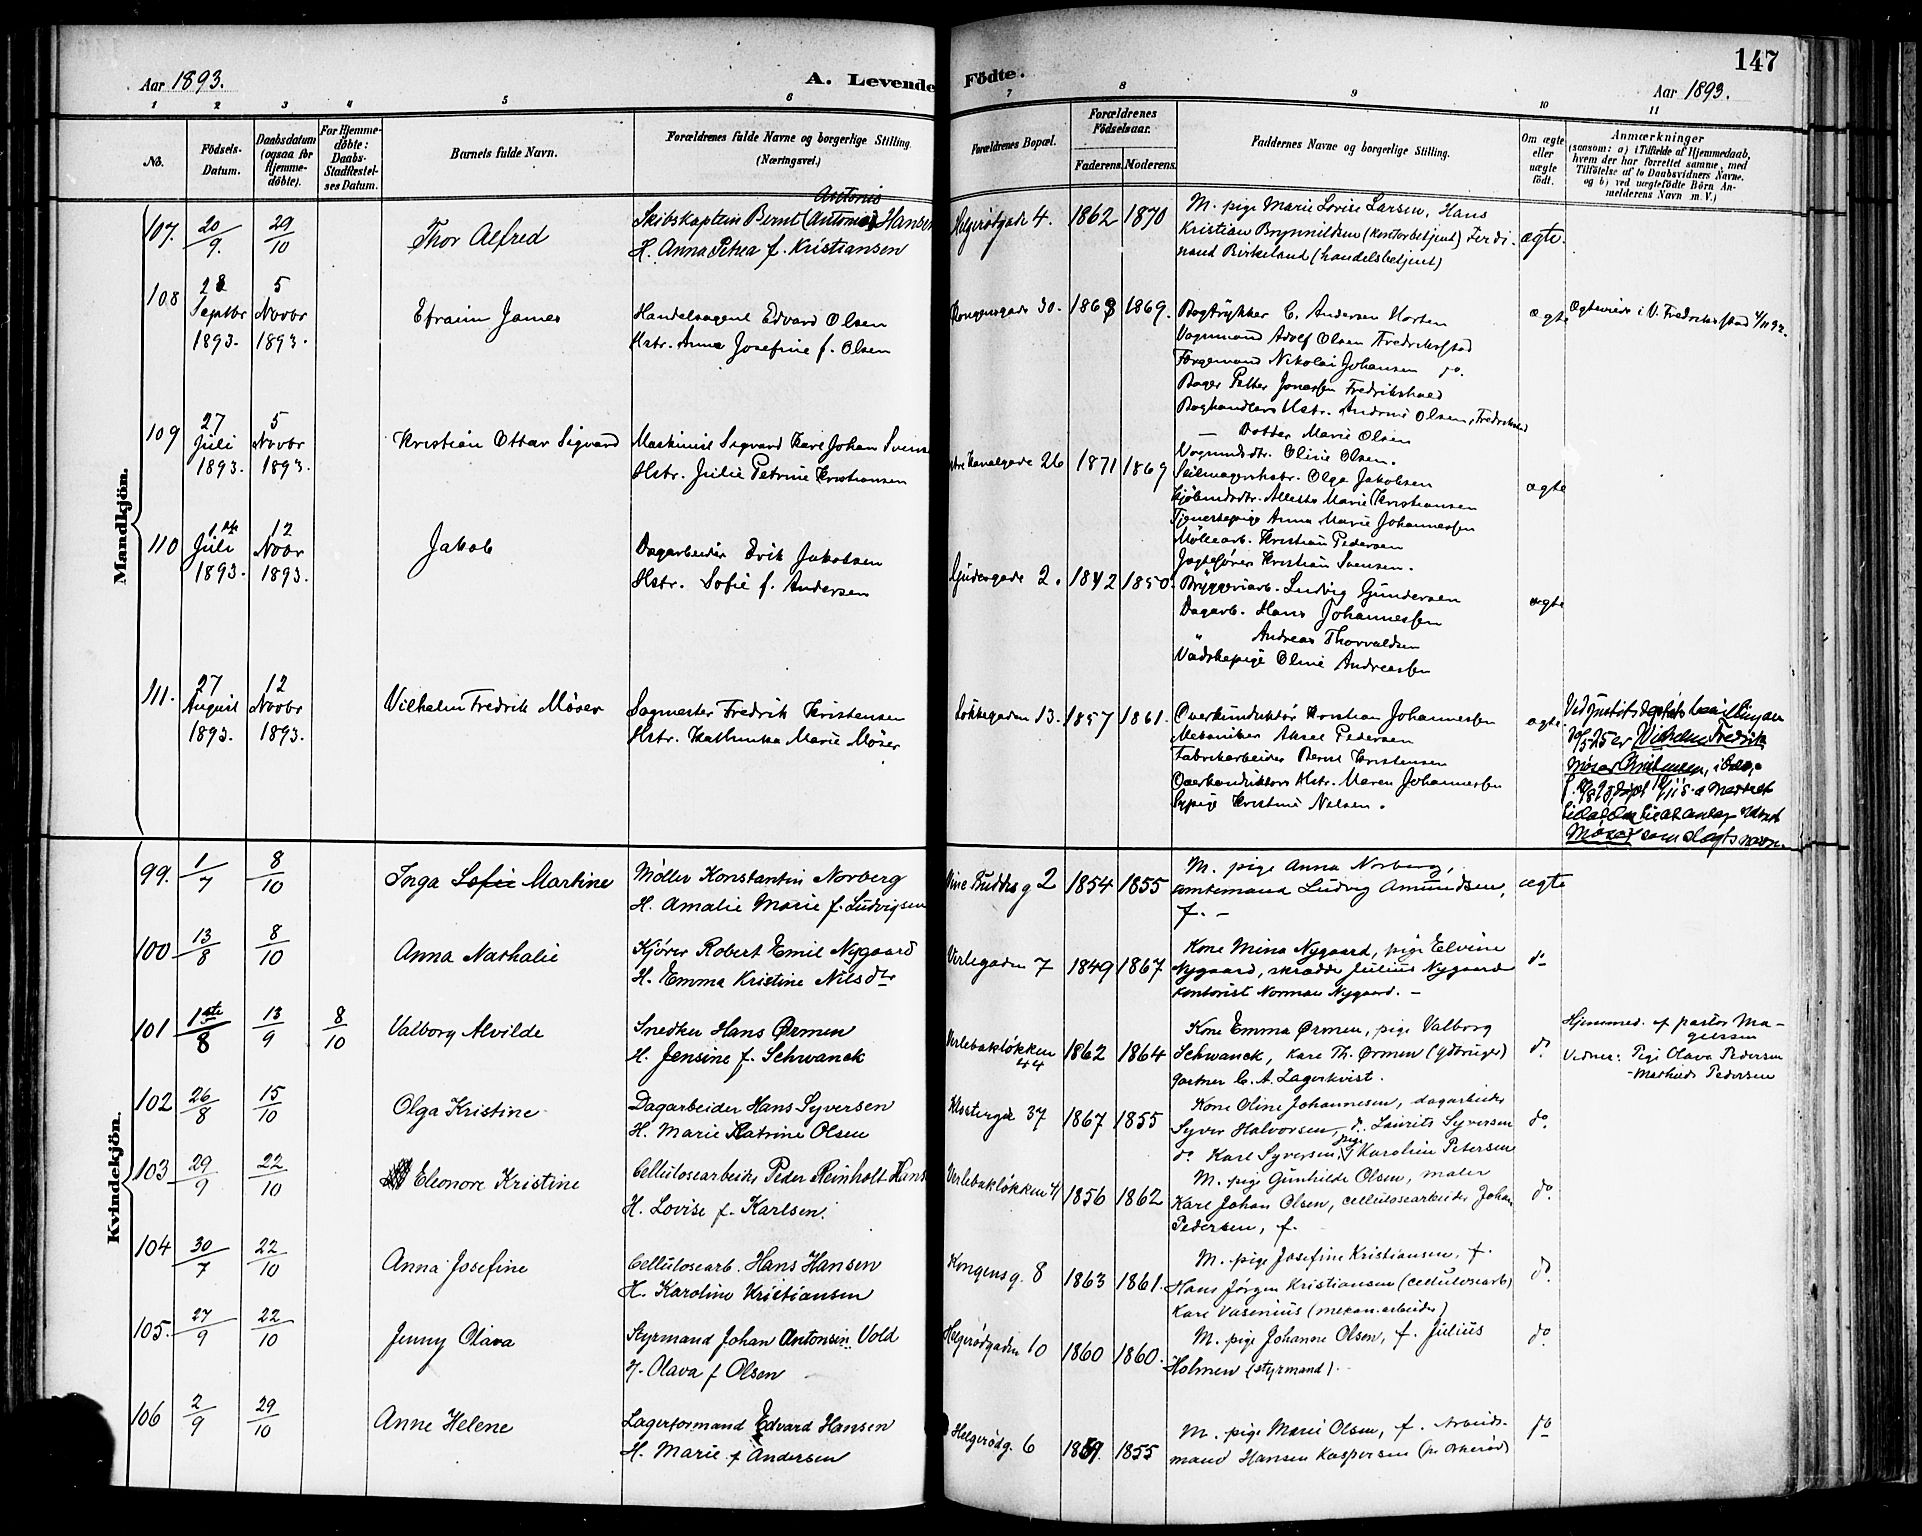 147
Aar 1893.
A. Levende Födte.
Aar 1893.
1 2 3 4 5 6 7 8 9 10 11
No.
Födsels-Datum.
Daabsdatum (ogsaa for Hjemme-döbte).
For Hjemme-döbte: Daabs-Stadfæstel-ses Datum.
Barnets fulde Navn.
Forældrenes fulde Navne og borgerlige Stilling. (Næringsvei.)
Forældrenes Bopæl.
Forældrenes Födselsaar.
Faderens. Moderens.
Faddernes Navne og borgerlige Stilling.
Om ægte eller uægte födt.
Anmærkninger
(saasom: a) i Tilfælde af Hjemmedaab, hvem der har forrettet samme, med Tilföielse af to Daabsvidners Navne, og b) ved uægtefödte Börn Anmelderens Navn m. V.)
Mandkjön.
107. 20/9. 29/10 Thor Alfred
Antonis
Skibskaptein Bernt (Antonius) Hansen
H. Anna Petrea f. Kristiansen
Helgerødgade 4. 1862 1870
M. pige Marie Lovise Larsen, Hans
Kristian Brynnildsen (kontorbetjent) Ferdi-
nand Birkeland (handelsbetjent)
ægte.
108 28 Septbr 1893. 5 Novbr 1893. Efraim James
Handelsagent Edvard Olsen
Hstr. Anna Josefine f. Olsen
Kongensgade 30. 1863 1869.
Bogtrykker C. Andersen Horten
Vognmand Adolf Olsen Fredrikstad
Farvemand Nikolai Johansen do.
Bager Petter Jonassen Fredrikshald
Boghandlers Hstr. Andrine Olsen, Fredrikstad
— Datter Marie Olsen
Vognmdsdtr. Oline Olsen.
ægte Ægteviede i V. Fredrikstad 4/11 92.
109 27 Juli 1893. 5 Novbr 1893. Kristian Ottar Sigvard
Maskinist Sigvard Karl Johan Svens
Hstr. Julie Petrine Kristiansen
Kanalgade 26 1871 1869
Seilmagerhstr. Olga Jakobsen
Kjøbmdsdtr. Alletta Marie Kristiansen
Tjenestepige Anna Marie Johannessen
Møllearb. Kristian Pedersen
Jagtefører Kristian Svensen.
ægte
110 14 Juli 1893. 12 Novbr 1893. Jakob
Dagarbeider Erik Jakobsen
Hstr. Sofie f. Andersen
Gudesgade 2. 1842 1850.
Bryggeriarb. Ludvig Gundersen
Dagarb. Hans Johannessen
Andreas Thorvaldsen
Vadskepige Oline Andreassen
ægte
111. 27 August 1893. 12 Novbr 1893. Vilhelm Fredrik Möser
Sagmester Fredrik Kristensen
Hstr. Kathinka Marie Möser
Løkkegaden 13. 1857 1861.
Overkonduktør Kristian Johannessen
Mekaniker Aksel Pedersen
Fabrikarbeider Bernt Kristensen
Overkonduktørs Hstr. Maren Johannessen
Sypige Kristine Nilsen.
ægte.
Ved justitsdeptets bevilling av
20/5 25 er Vilhelm Fredrik
Möser Kristensen,
Möser som slegtsnavn.
Kvindekjön.
99. 1/7 8/10 Inga Sofie Martine
Møller Konstantin Norberg
H. Amalie Marie f. Ludvigsen
Buddes g 2 1854 1855
M. pige Anna Norberg,
Amtemand Ludvig Amundsen,
f. –
ægte
100 13/8 8/10 Anna Nathalie
Kjører Robert Emil Nygaard
H. Emma Kristine Nilsdtr
Verlegaden 7 1849 1867
Kone Mina Nygaard, pige Elvine
Nygaard, skrædder Julius Nygaard
kontorist Norman Nygaard. –
do
101 1ste/8 13/9 8/10 Valborg Alvilde
Snedker Hans Ørmen
H. Jensine f. Schwanck
Verlebakløkken 44 1862 1864
Kone Emma Ørmen, pige Valborg
Schwanck, Karl Th. Ørmen (gdbruger)
gartner C. A. Lagerkvist.
do.
Hjemmed. af pastor Ma-
gelssen
Vidner: Pige Olava Pedersen
– Mathilde Pedersen
102 26/8 15/10 Olga Kristine
Dagarbeider Hans Syversen
H. Marie Katrine Olsen
Klostergd 37 1867 1855
Kone Oline Johannesen, dagarbeider
Syver Halvorsen, do. Laurits Syversen
do. Karl Syversen, pige Karoline Petersen
do.
103 29/9 22/10 Eleonore Kristine
Cellulosearbeider Peder Reinholt Hans
H. Lovise f. Karlsen.
Verlebakløkken 41 1856 1862
M. pige Gunhilde Olsen, maler
Karl Johan Olsen, cellulosearbeider Johan
Pedersen, f.
do.
104 30/7 22/10 Anna Josefine
Cellulosearb. Hans Hansen
H. Karoline Kristiansen
Kongensg. 8 1863 1861.
M. pige Josefine Kristiansen, f.
Hans Jørgen Kristiansen (cellulosearb)
Karl Vasenius (mekan. arbeider)
do.
105. 27/9 22/10 Jenny Olava
Styrmand Johan Antonsen Vold
H. Olava f Olsen
Helgerødgaden 10 1860 1860.
M. pige Johanne Olsen, f. Julius
Holmen (styrmand).
do
106 2/9 29/10 Anne Helene
Lagerformand Edvard Hansen
H. Marie f Andersen
Helgerødg. 6 1859. 1855
M. pige Marie Olsen, f. Arbeids-
mand Hansen Kaspersen
do